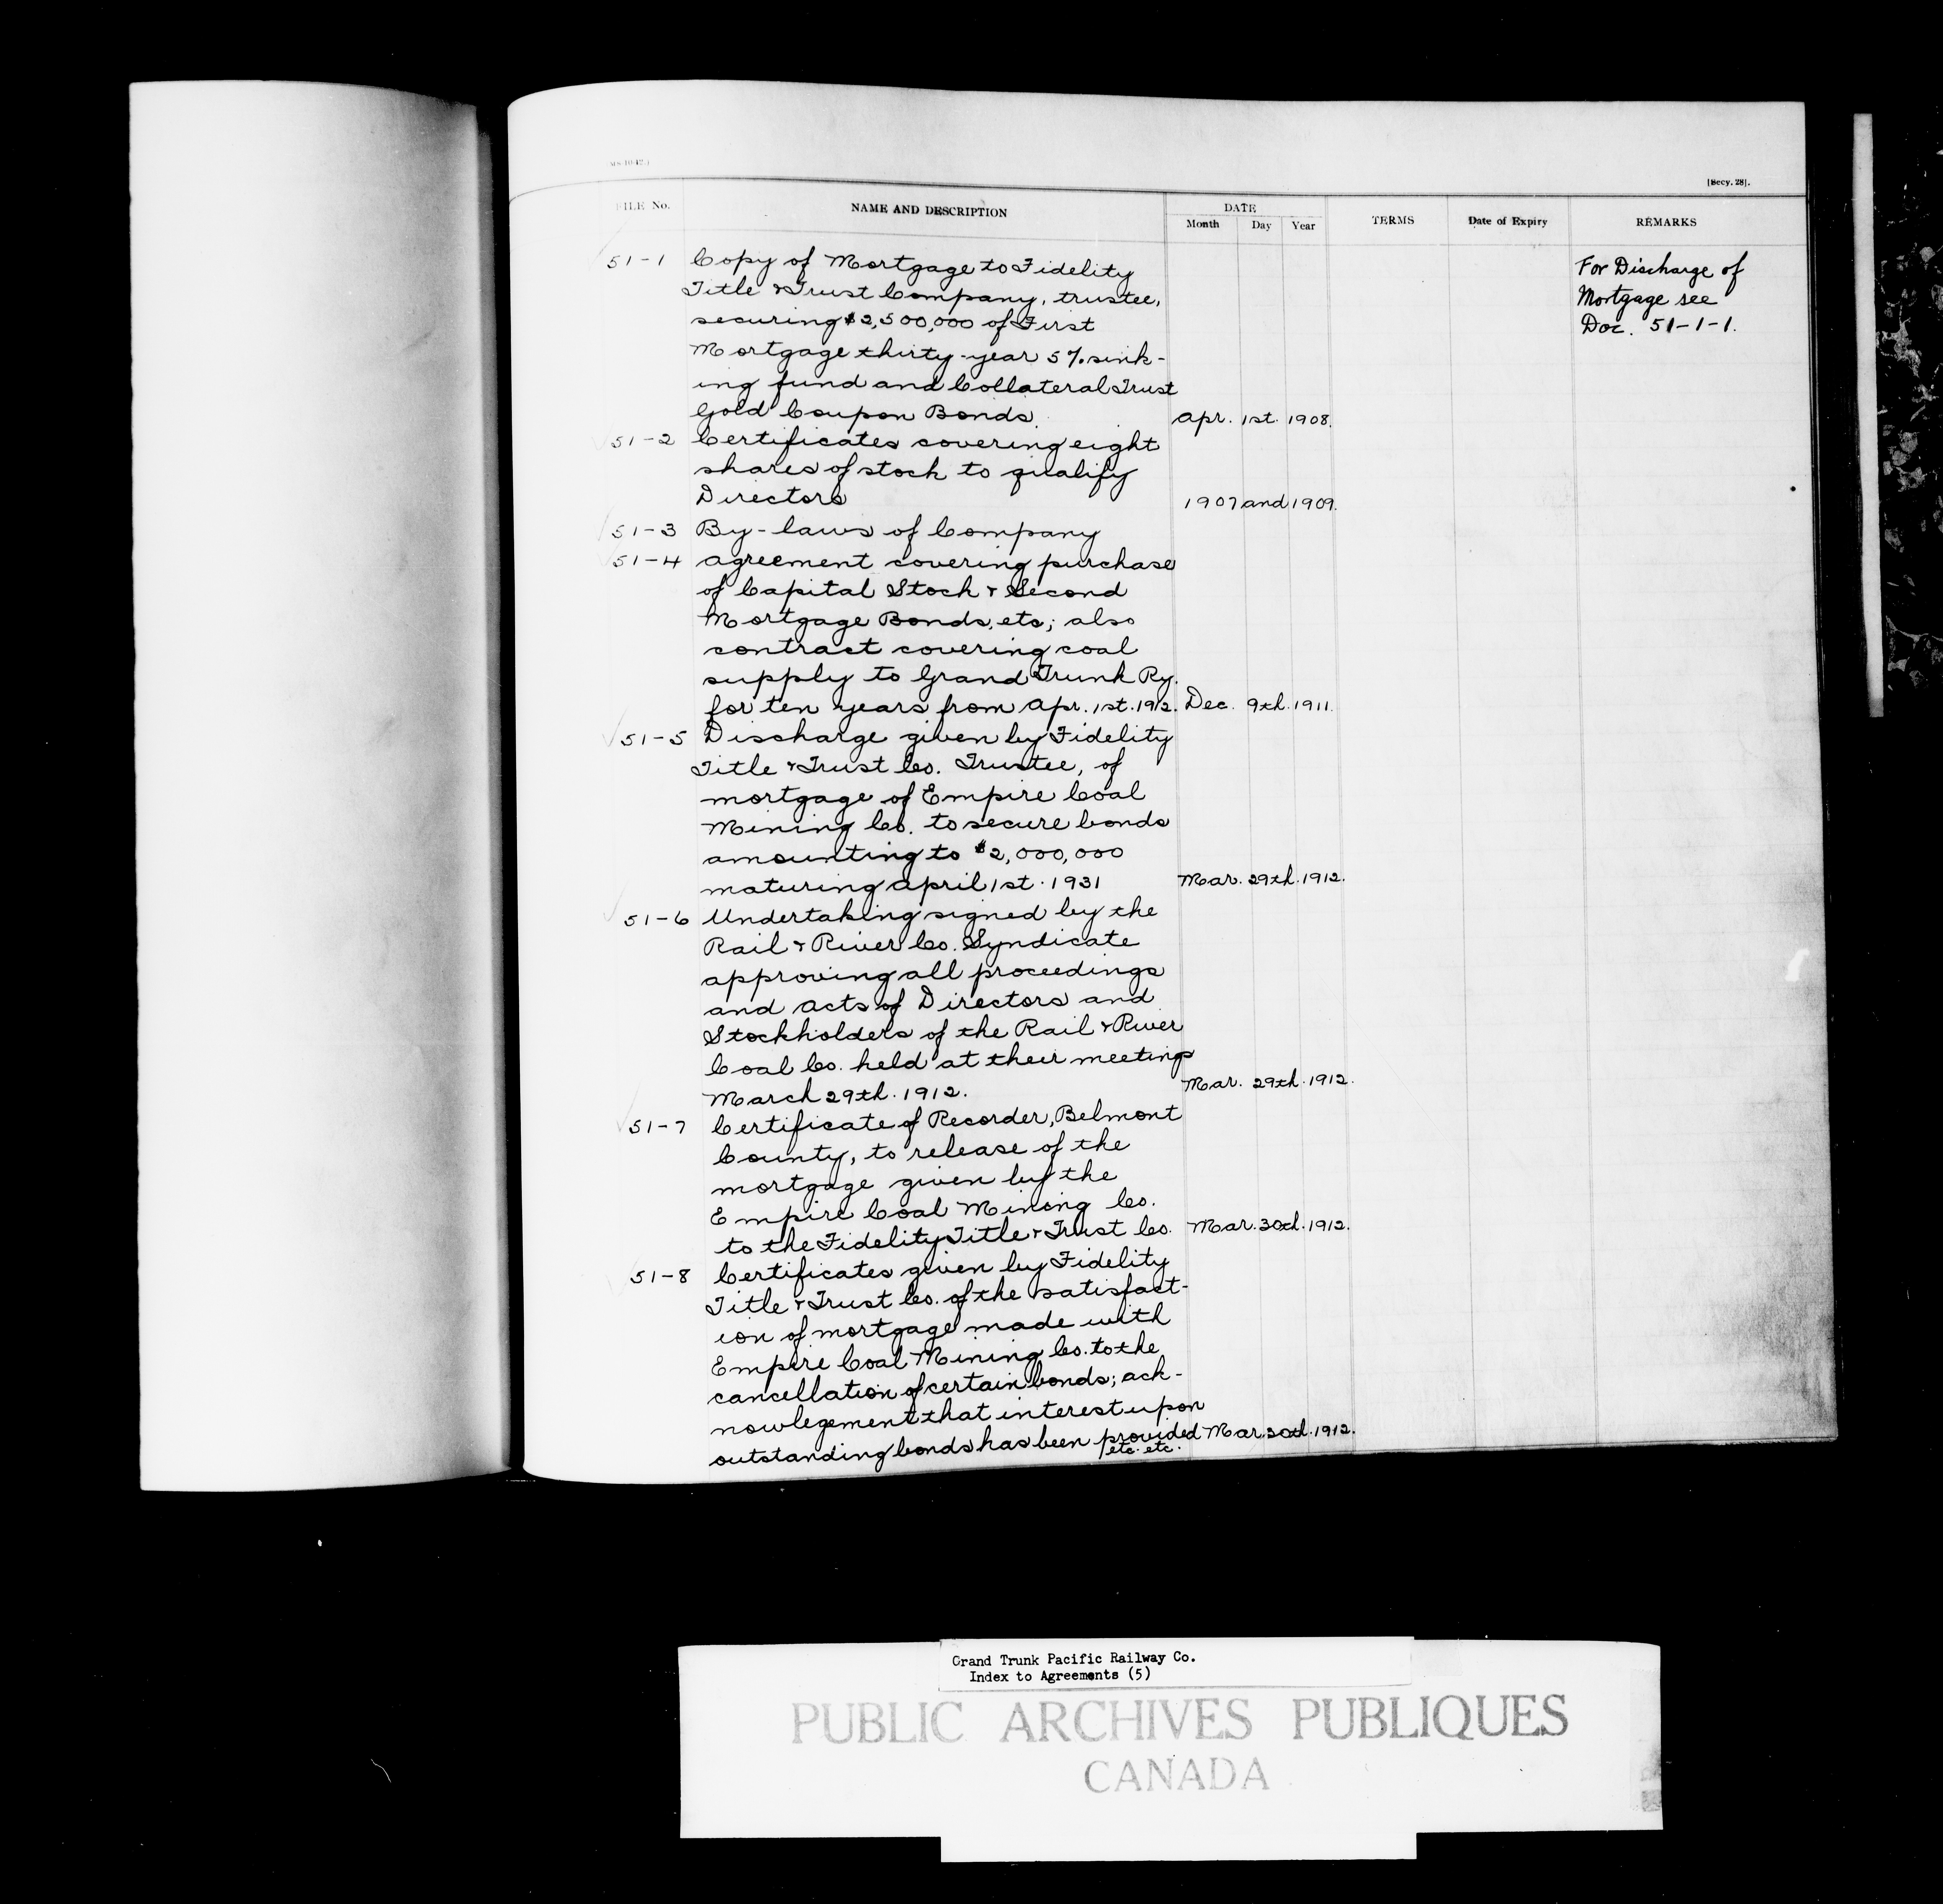 [Secy. 28].
FILE No.
NAME AND DESCRIPTION
DATE
Month Day Year
TERMS
Date of Expiry
REMARKS
51-1 Copy of Mortgage to Fidelity
Title & Trust Company, trustee,
securing $2,500,000 of First
Mortgage thirty-year 5% sink-
ing fund and Collateral Trust
Gold Coupon Bonds. Apr. 1st. 1908.
For Discharge of
Mortgage see
Doc. 51-1-1.
51-2 Certificates covering eight
shares of stock to qualify
Directors 1907 and 1909.
51-3 By-laws of Company
51-4 Agreement covering purchase
of Capital Stock & Second
Mortgage Bonds, etc; also
contract covering coal
supply to Grand Trunk Ry.
for ten years from Apr. 1st. 1912. Dec. 9th. 1911.
51-5 Discharge given by Fidelity
Title & Trust Co. Trustee, of
mortgage of Empire Coal
Mining Co. to secure bonds
amounting to $2,000,000
maturing April 1st. 1931 Mar. 29th. 1912.
51-6 Undertaking signed by the
Rail & River Co. Syndicate
approving all proceedings
and acts of Directors and
Stockholders of the Rail & River
Coal Co. held at their meetings
March 29th. 1912. Mar. 29th. 1912.
51-7 Certificate of Recorder, Belmont
County, to release of the
mortgage given by the
Empire Coal Mining Co.
to the Fidelity Title & Trust Co. Mar. 30th. 1912.
51-8 Certificates given by Fidelity
Title & Trust Co. of the satisfact-
ion of mortgage made with
Empire Coal Mining Co. to the
cancellation of certain bonds; ack-
nowlegement that interest upon
outstanding bonds has been provided Mar. 30th. 1912.
etc. etc.
Grand Trunk Pacific Railway Co.
Index to Agreements (5)
PUBLIC ARCHIVES PUBLIQUES
CANADA